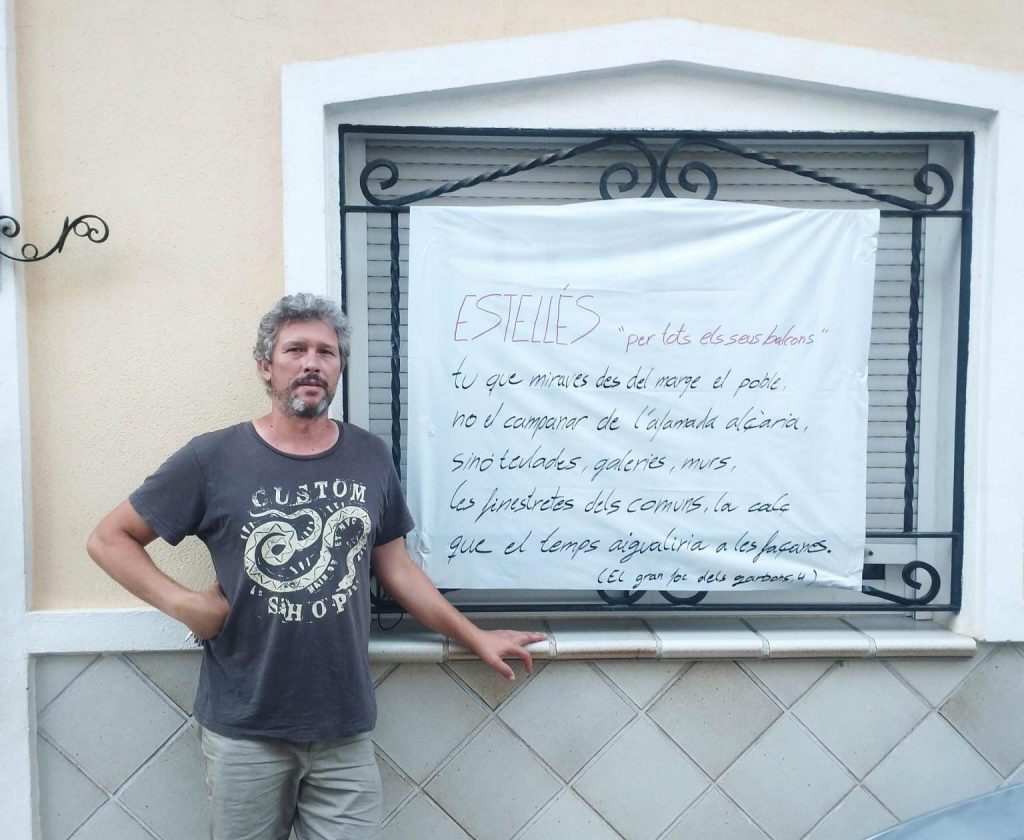 ESTELLÉS "per tots els seus balcons"
tu que miraves des del marge el poble,
no el campanar de l'afamada alçària,
sinó teulades, galeries, murs,
les finestretes dels comuns, la calç
que el temps aigualiria a les façanes.
(El gran foc dels garbons, 4)
CUSTOM
SHOP